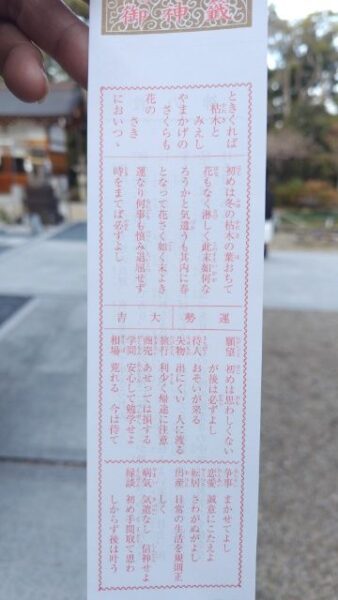 御神籤
ときくれば
枯木と
みえし
やまかげの
さくらも
花の
さき
においつゝ
初めは冬の枯木の葉おちて
花もなく淋しく此末如何な
ろうかと気遣うも其内に春
となって花さく如く末よき
運なり何事も慎み退屈せず
時をまてば必ずよし
運勢 大吉
願望 初めは思わしくない
が後は必ずよし
待人 おそいが来る
失物 出にくい 人に渡る
旅行 利少く帰途に注意
商売 あせっては損する
学問 安心して勉学せよ
相場 荒れる 今は待て
争事 まかせてよし
恋愛 誠意にこたえよ
転居 さわがぬがよし
出産 日常の生活を規則正
しく
病気 気遣なし 信神せよ
縁談 初め手間取て思わ
しからず後は叶う